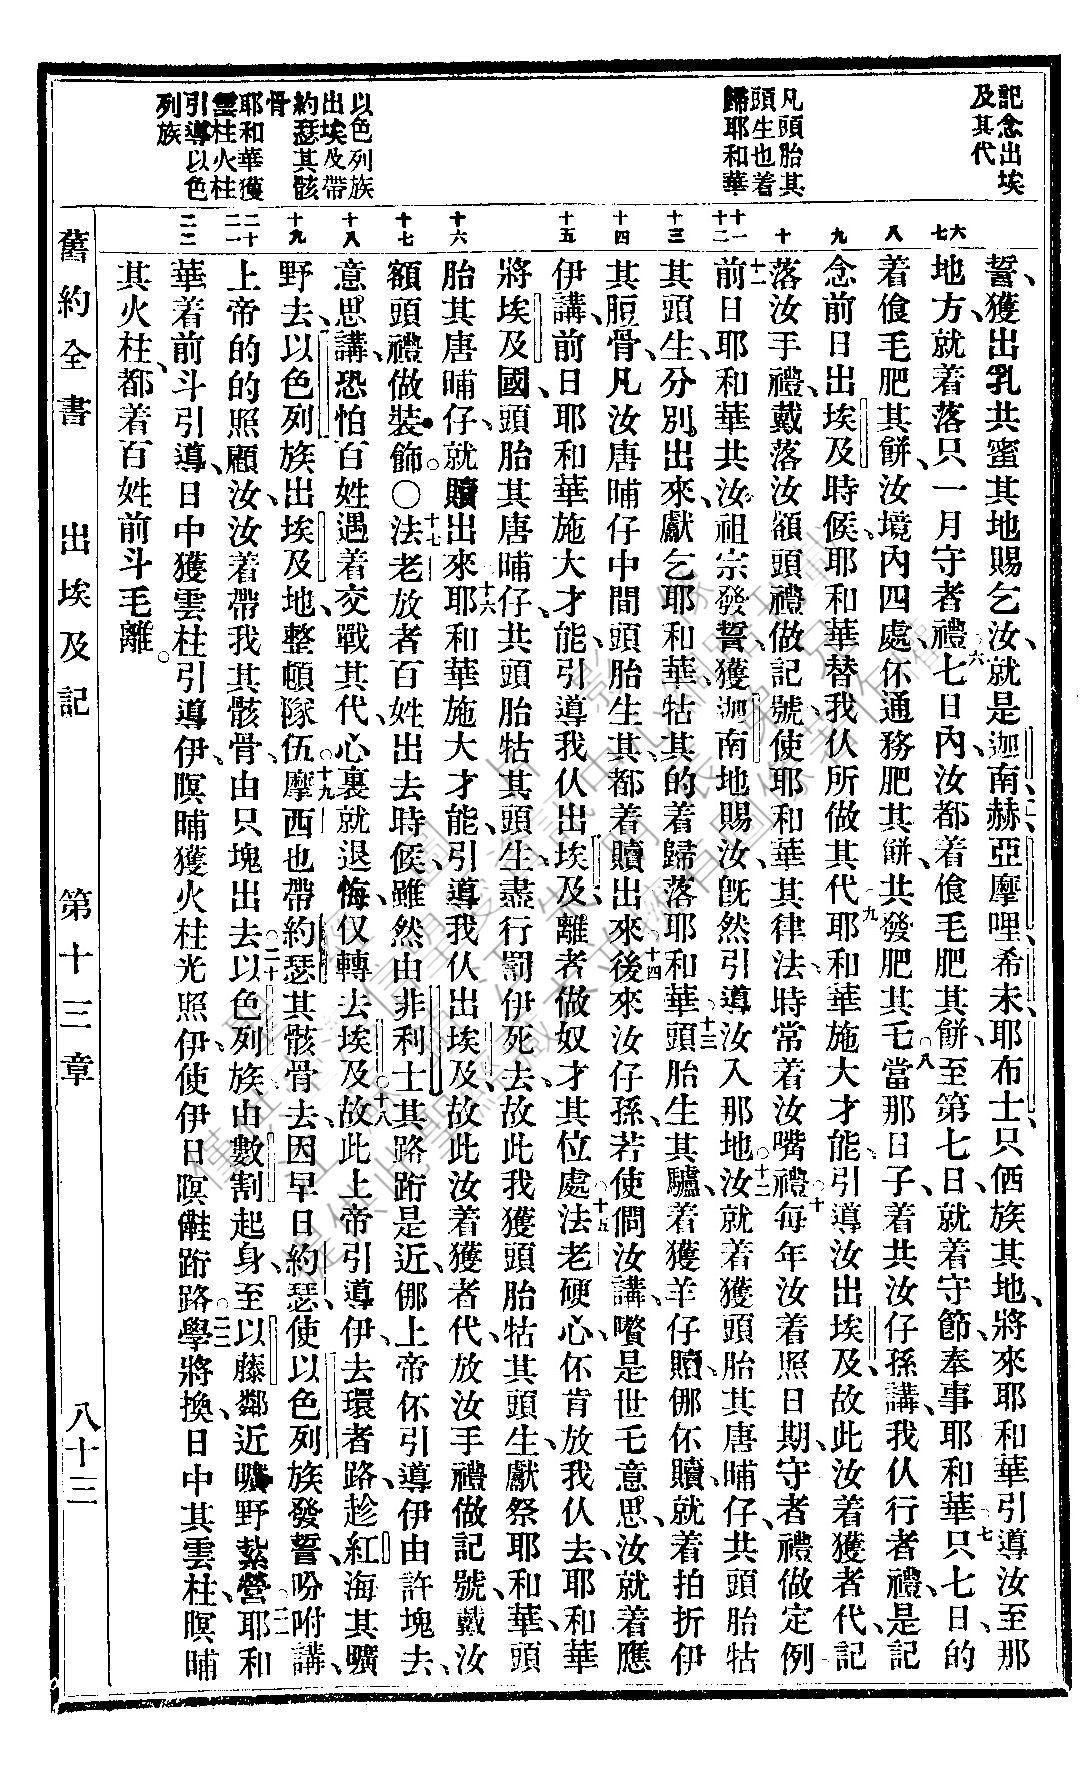 記念出埃
及其代
凡頭胎其
頭生也着
歸耶和華
以色列族
出埃及帶
約瑟其骸
骨
耶和華獲
雲柱火柱
引導以色
列族
六
七
八
九
十
十一
十二
十三
十四
十五
十六
十七
十八
十九
二十
二一
二二
誓、獲出乳共蜜其地賜乞汝、就是迦南、赫、亞摩哩、希未、耶布士、只価族其地、將來耶和華引導汝至那
地方、就着落只一月守者禮、六七日內、汝都着飡毛肥其餅、至第七日、就着守節、奉事耶和華。七只七日的
着飡毛肥其餅、汝境內四處、伓通務肥其餅、共發肥其毛。八當那日子、着共汝仔孫講、我仈行者禮、是記
念前日出埃及時候、耶和華替我仈所做其代、九耶和華施大才能、引導汝出埃及、故此汝着獲者代、記
落汝手禮、戴落汝額頭禮做記號、使耶和華其律法、時常着汝嘴禮、十每年汝着照日期、守者禮、做定例
十一前日耶和華共汝祖宗發誓、獲迦南地賜汝、旣然引導汝入那地、十二汝就着獲頭胎其唐晡仔、共頭胎牯
其頭生、分別出來、獻乞耶和華、牯其的着歸落耶和華。十三頭胎生其驢、着獲羊仔贖、倻伓贖、就着拍折伊
其脰骨、凡汝唐晡仔中間、頭胎生其、都着贖出來、十四後來汝仔孫若使問汝講、嚽是世乇意思、汝就着應
伊講、前日耶和華施大才能、引導我仈出埃及、離者做奴才其位處、十五法老硬心、伓肯放我仈去、耶和華
將埃及國、頭胎其唐晡仔、共頭胎牯其頭生、盡行罰伊死去、故此我獲頭胎牯其頭生、獻祭耶和華、頭
胎其唐晡仔、就贖出來、十六耶和華施大才能、引導我仈出埃及、故此汝着獲者代、放汝手禮做記號、戴汝
額頭禮做裝飾。〇十七法老放者百姓出去時候、雖然由非利士其路跲是近、倻上帝伓引導伊由許塊去、
意思講、恐怕百姓遇着交戰其代、心裏就退悔、仅轉去埃及、十八故此上帝引導伊、去環者路、趁紅海其曠
野去、以色列族出埃及地、整頓隊伍。十九摩西也帶約瑟其骸骨去、因早日約瑟使以色列族發誓、吩咐講、
上帝的的照顧汝、汝着帶我其骸骨、由只塊出去。二十以色列族由數割起身、至以藤鄰近曠野紮營、二一耶和
華着前斗引導、日中獲雲柱引導伊、暝晡獲火柱光照伊、使伊日暝儺跲路。二二學將換、日中其雲柱、暝晡
其火柱、都着百姓前斗毛離。
舊約全書　出埃及記　第十三章　八十三